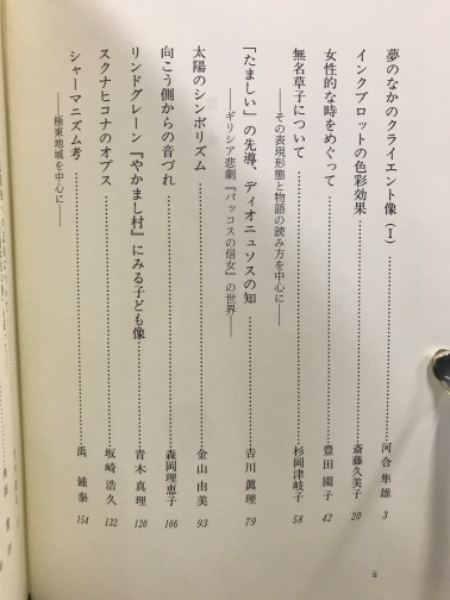 夢のなかのクライエント像(Ⅰ)……河合隼雄 3
インクブロットの色彩効果……斎藤久美子 20
女性的な時をめぐって……豊田園子 42
無名草子について……杉岡津岐子 58
――その表現形態と物語の読み方を中心に――
「たましい」の先導、ディオニュソスの知……吉川眞理 79
――ギリシア悲劇『バッコスの信女』の世界――
太陽のシンボリズム……金山由美 93
向こう側からの音づれ……森岡理恵子 106
リンドグレーン『やかまし村』にみる子ども像……青木真理 120
スクナヒコナのオプス……坂崎浩久 132
シャーマニズム考……禹鍾泰 154
――極東地域を中心に――
ii